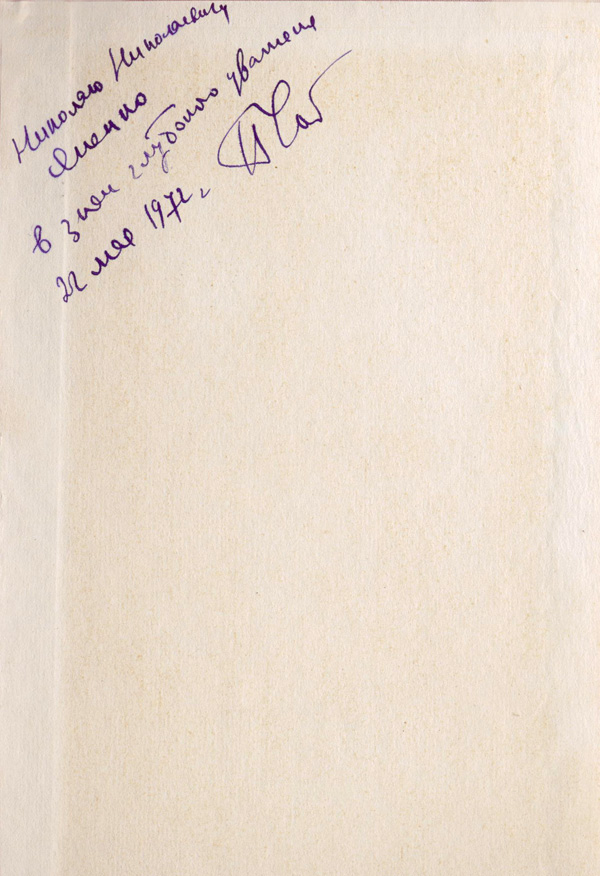 Николаю Николаевичу
Яненко
в знак глубокого уважения
22 мая 1972 г.